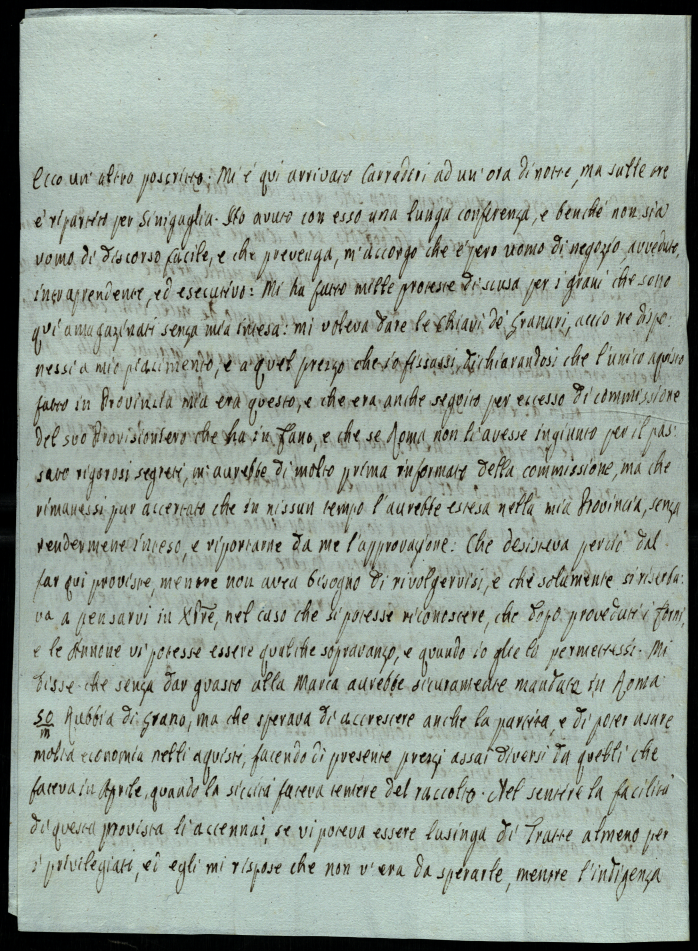 Ecco un' altro poscritto: Mi è qui arrivato Carradori ad un' ora di notte, ma sulle tre
è ripartito per Sinigaglia. Ho avuto con esso una lunga conferenza, e benché non sia
uomo di discorso facile, e che prevenga, m'accorgo che è però uomo di negozio, avveduto,
intraprendente, ed esecutivo: Mi ha fatto mille proteste di scusa per i grani che sono
qui amagazinati senza mia intesa: mi voleva dare le chiavi de' Granari, acciò ne dispo:
nessi a mio piacimento, e a quel prezzo che io fissassi, dichiarandosi che l'unico aquisto
fatto in Provincia mia era questo, e che era anche seguito per eccesso di commissione
del suo Provisioniero che ha in Fano, e che se Roma non li avesse ingiunto per il pas:
sato rigorosi segreti, m'aurebbe di molto prima informato della commissione, ma che
rimanessi pur accertato che in nissun tempo l'aurebbe estesa nella mia Provincia, senza
rendermene inteso, e riportarne da me l'approvazione: Che desisteva perciò dal
far qui proviste, mentre non avea bisogno di rivolgervisi, e che solamente si riserba:
va a pensarvi in Xbre, nel caso che si potesse riconoscere, che dopo proveduti i forni,
e le Annone vi potesse essere qualche sopravanzo, e quando io glie lo permettessi. Mi
disse che senza dar guasto alla Marca aurebbe sicuramente mandate in Roma
50/m Rubbia di Grano, ma che sperava di accrescere anche la partita, e di poter usare
molta economia nelli aquisti, facendo di presente prezzi assai diversi da quelli che
faceva in Aprile, quando la siccità faceva temere del raccolto. Nel sentire la facilità
di questa provista li accennai, se vi poteva essere lusinga di Tratte almeno per
i privilegiati, ed egli mi rispose che non v'era da sperarle, mentre l'indigenza